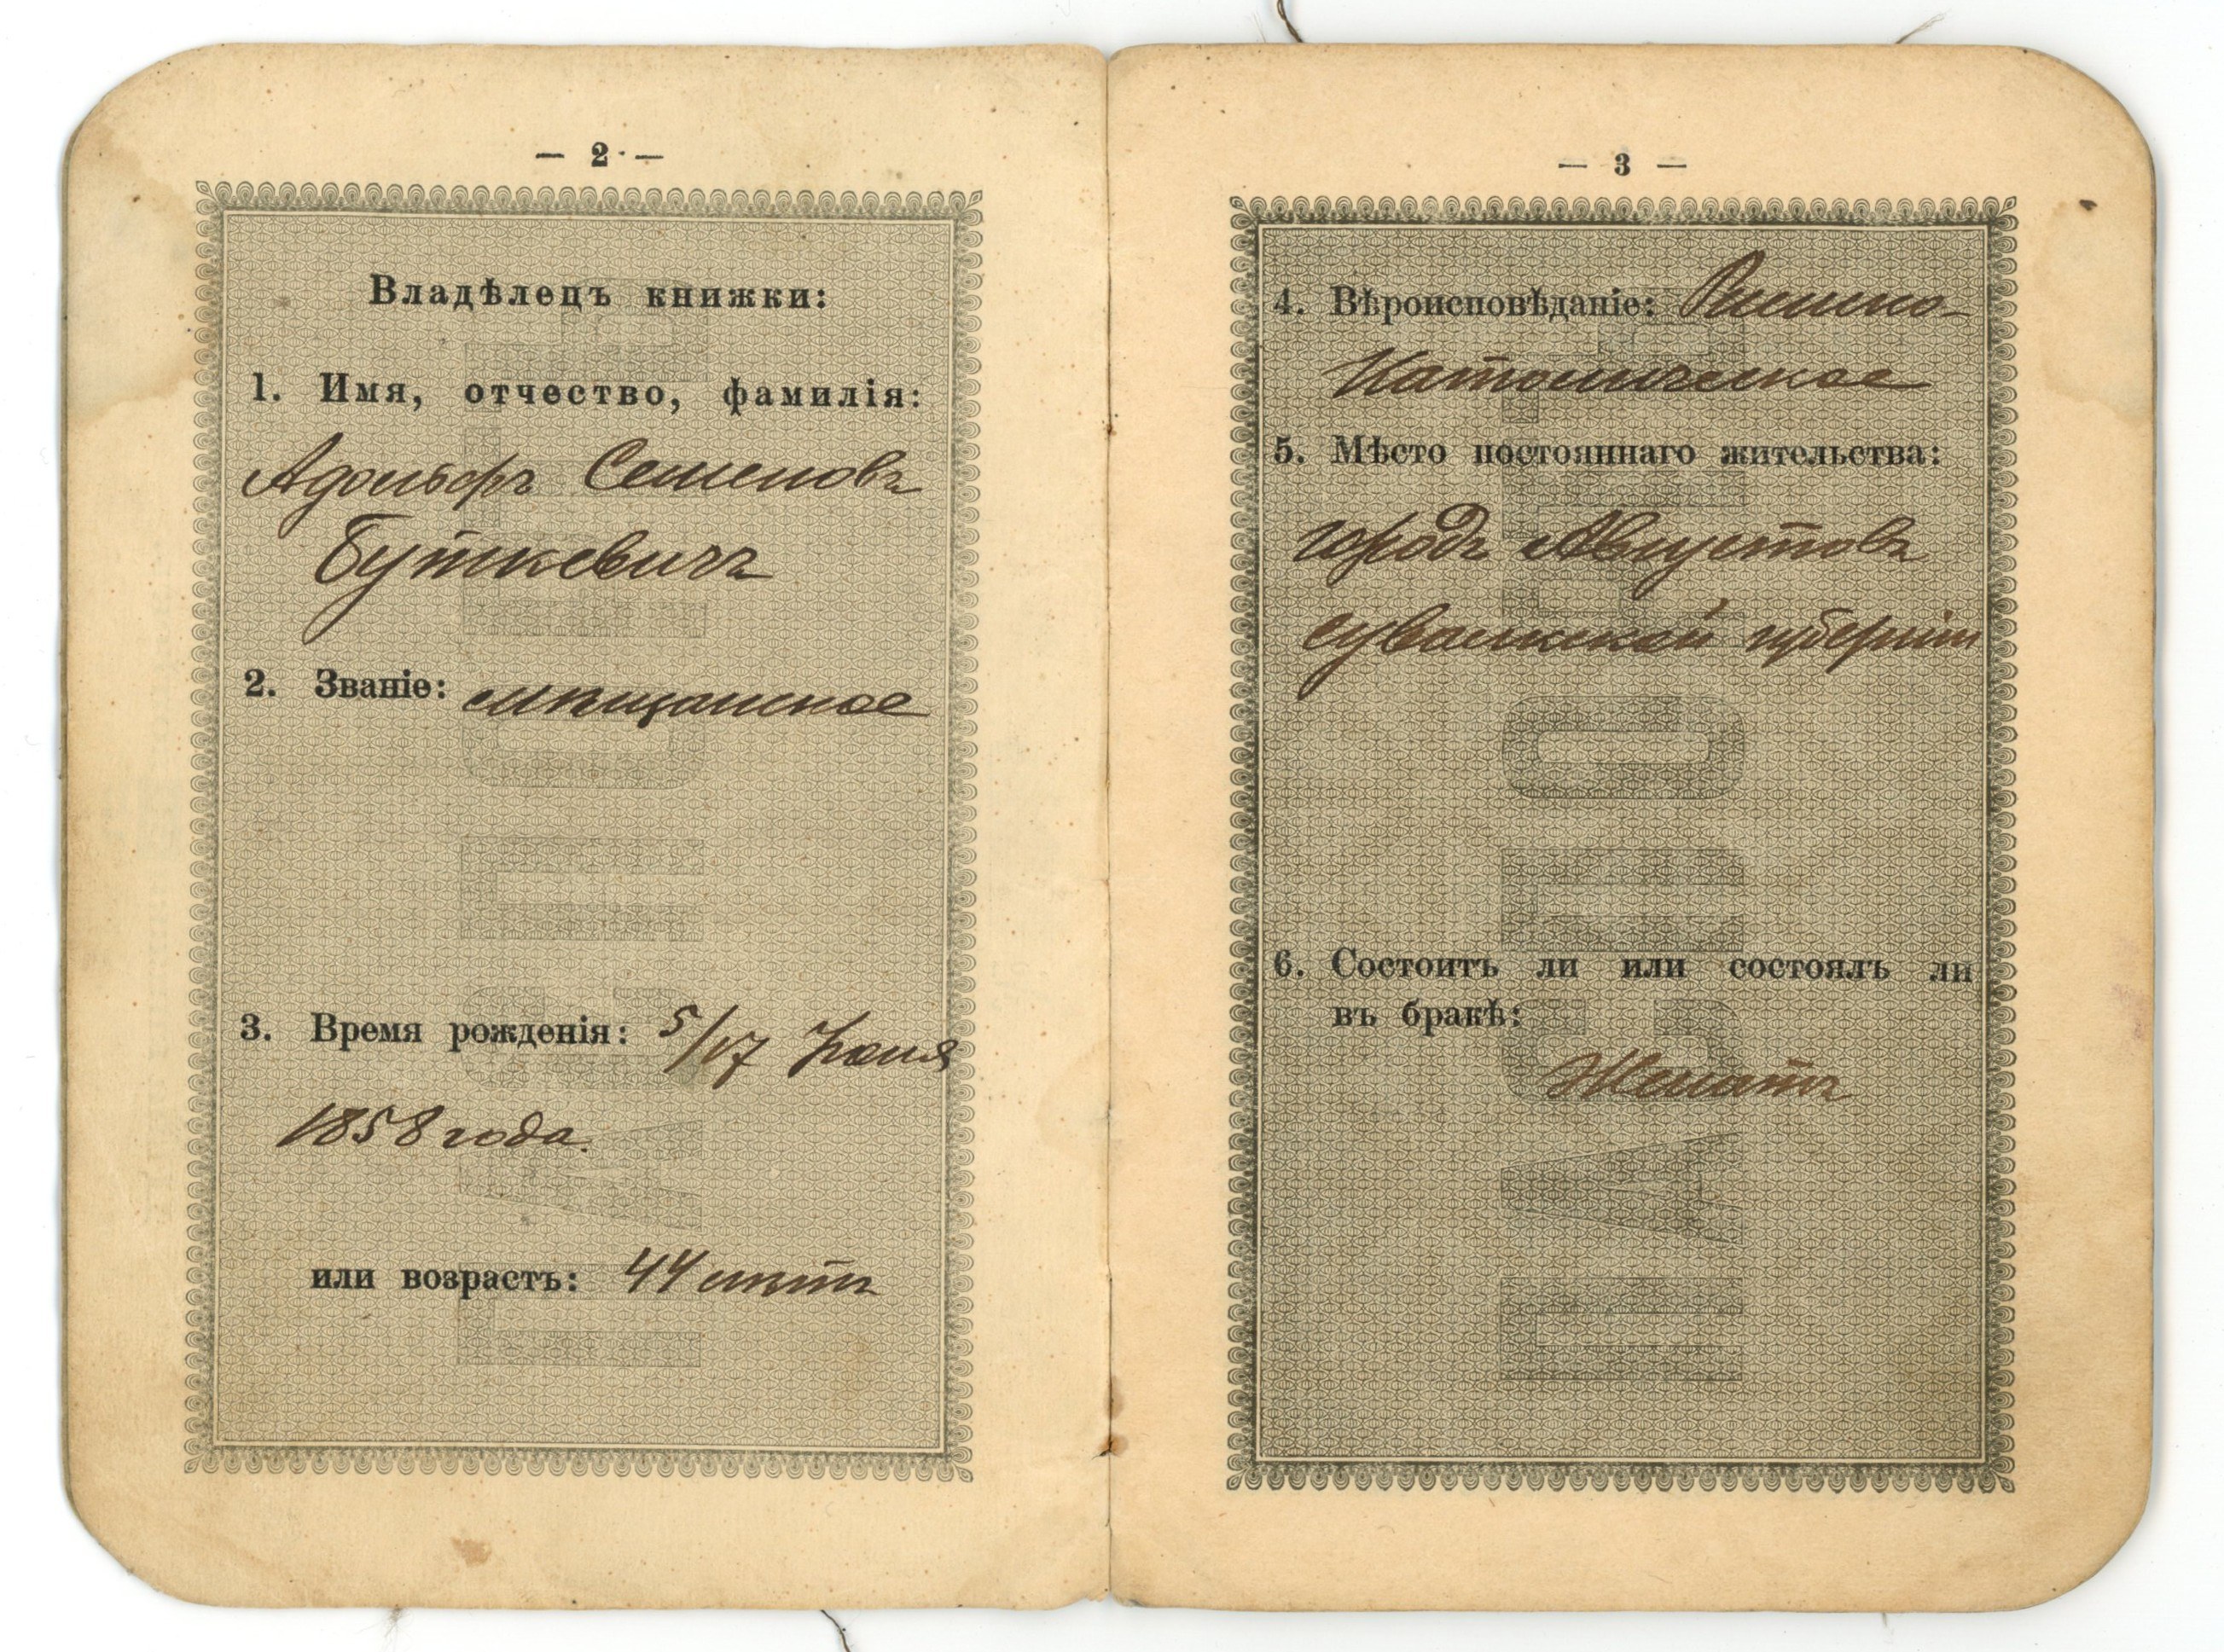 — 2 —
Владѣлецъ книжки:
1. Имя, отчество, фамилія:
Адольфъ Семеновъ
Буткевичъ
2. Званіе: мѣщанское
3. Время рожденія: 5/17 Іюня
1858 года.
или возрастъ: 44 лѣтъ
ПАСПОРТЪ
— 3 —
4. Вѣроисповѣданіе: Римско-
Католическое
5. Мѣсто постояннаго жительства:
городъ Августовъ
Сувалкской губерніи
6. Состоитъ ли или состоялъ ли
въ бракѣ:
Женатъ
ПАСПОРТЪ